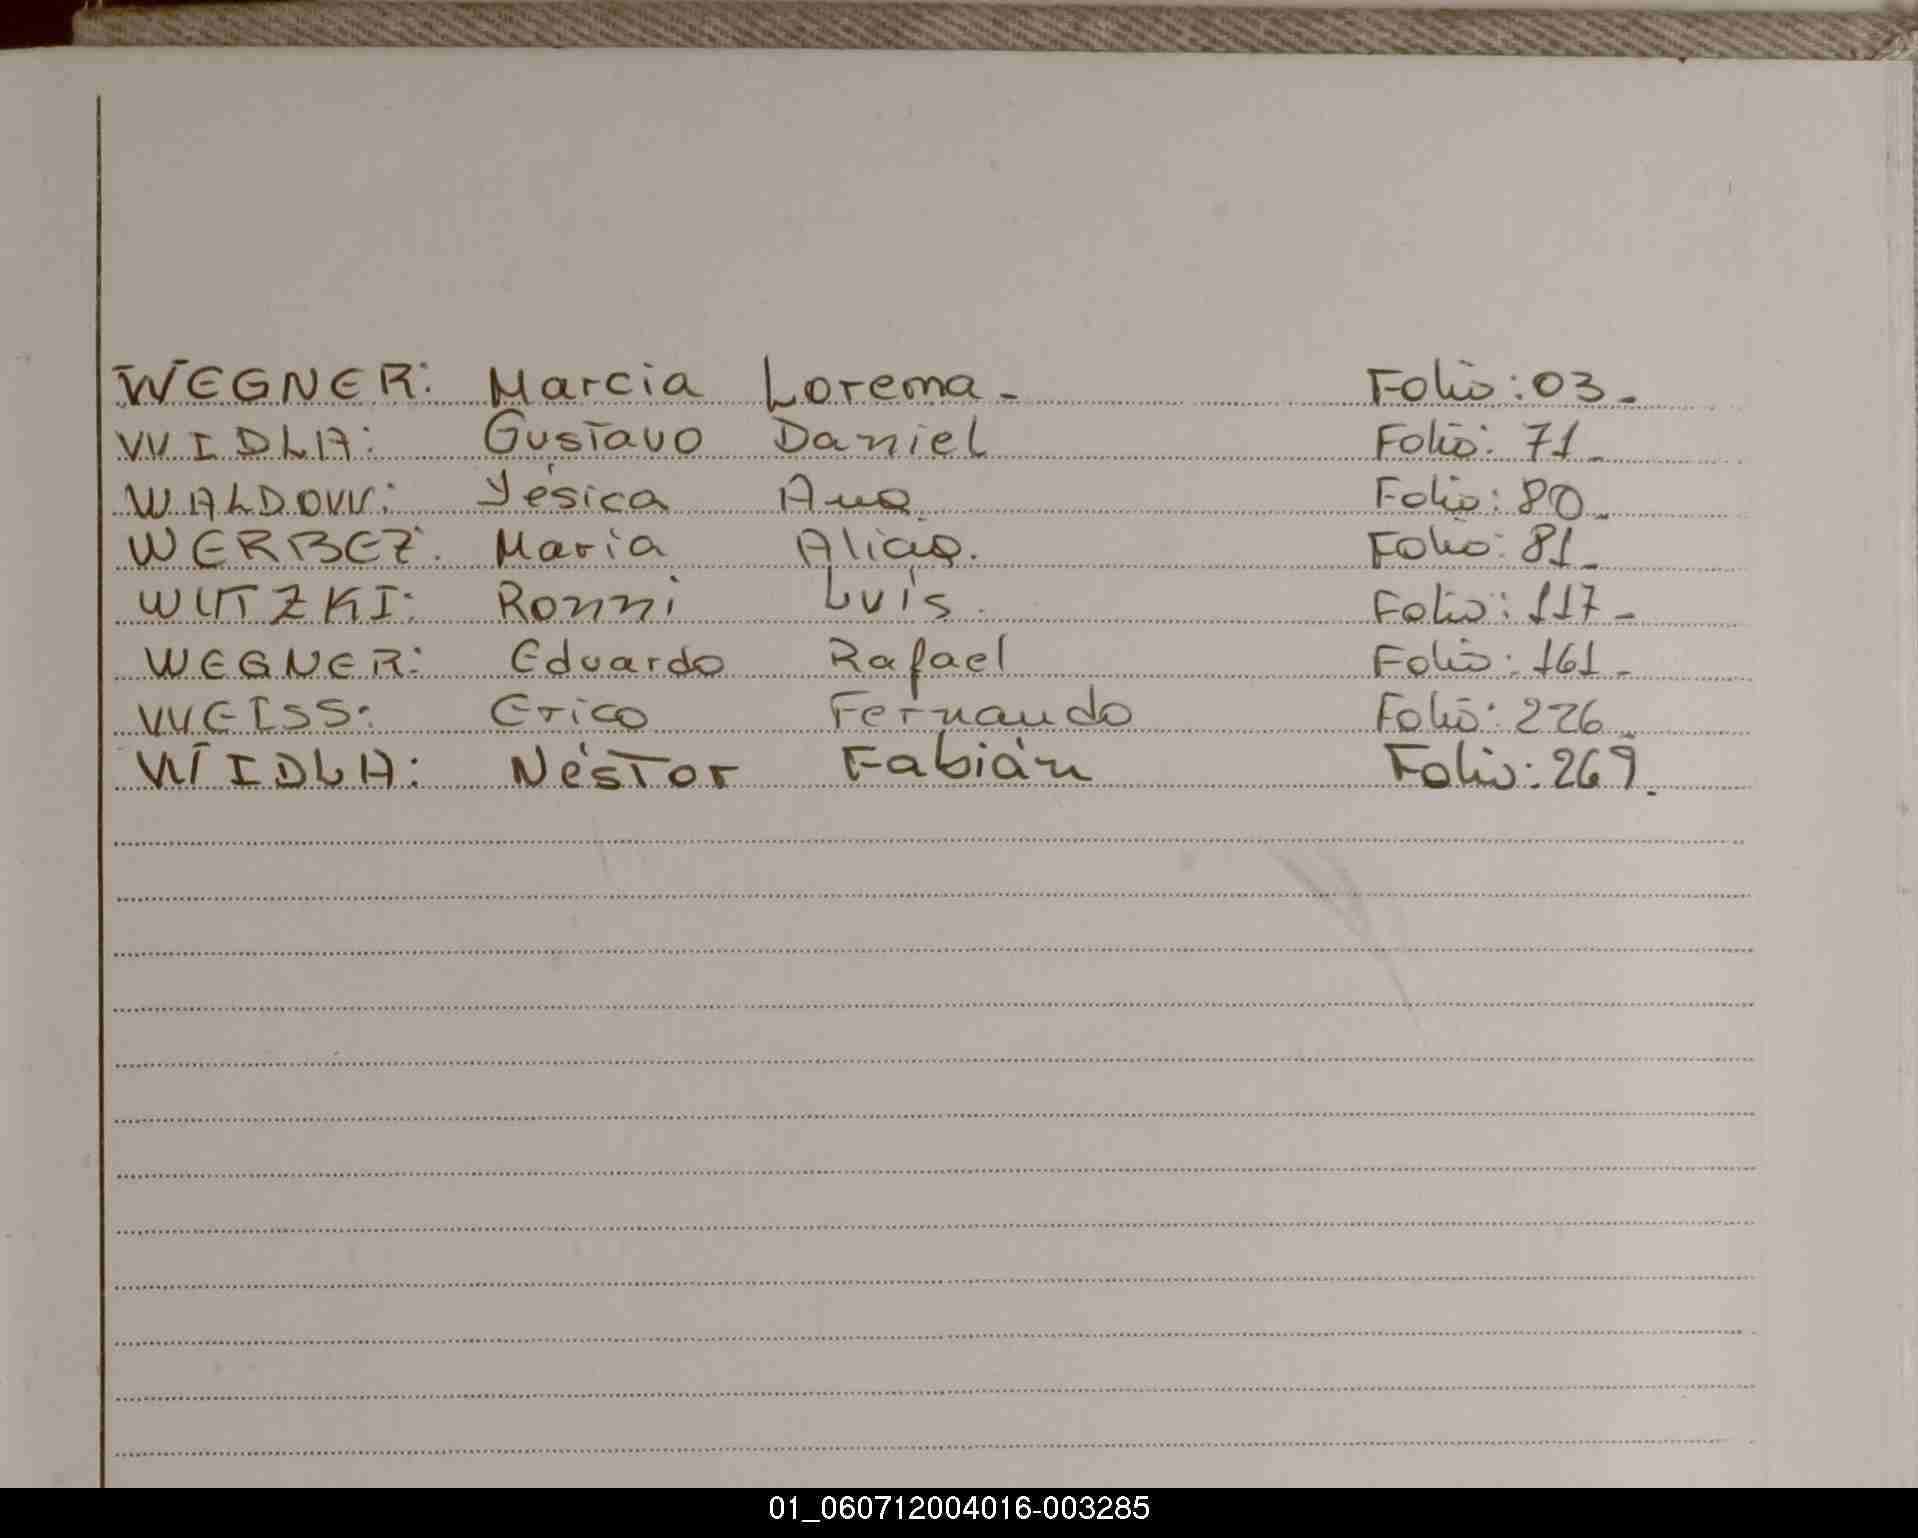 WEGNER: Marcia Lorema - Folio: 03 -
WIDLA: Gustavo Daniel Folio: 71 -
WALDOW: Yésica Ana. Folio: 80 -
WERBEZ. Maria Folio: 81 -
WUTZKI: Ronni Luís. Folio: 117 -
WEGNER: Eduardo Rafael Folio: 161 -
WEISS: Erico Fernando Folio: 226 -
WIDLA: Néstor Fabián Folio: 269.
01_060712004016-003285